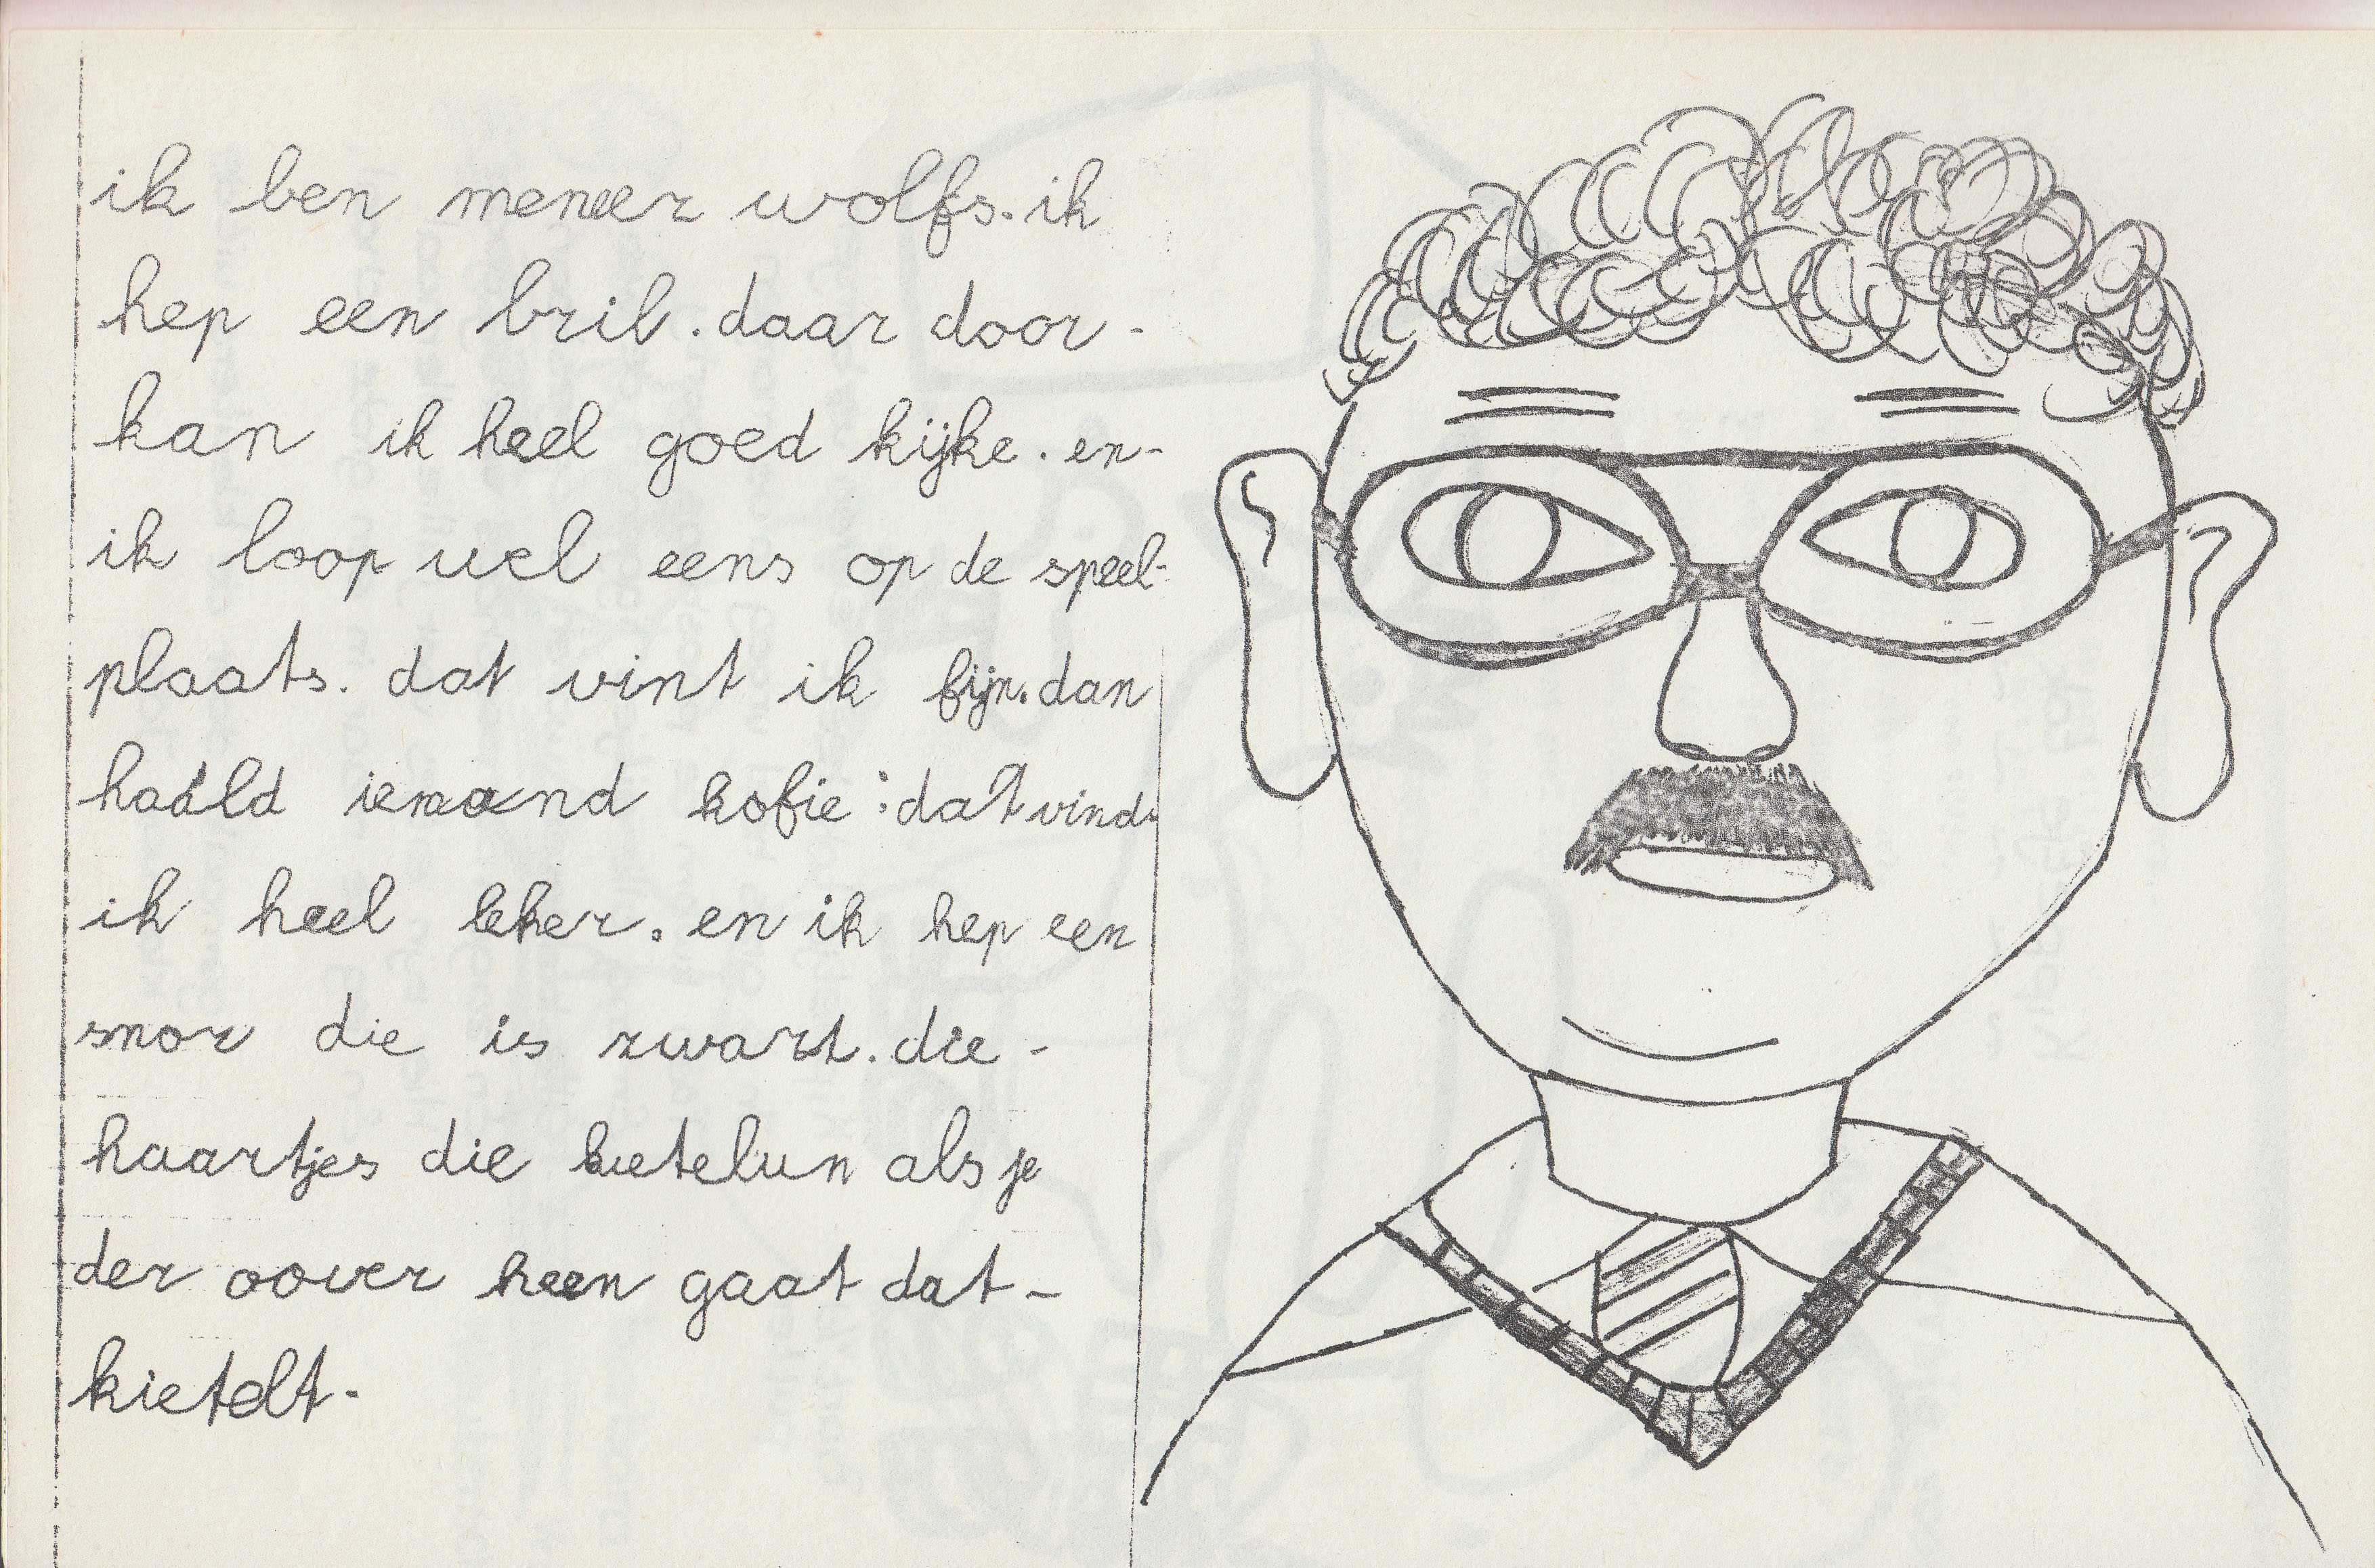 ik ben meneer wolfs. ik
hep een bril. daar door -
kan ik heel goed kijke. en-
ik loop wel eens op de speel-
plaats. dat vint ik fijn. dan
haald iemand kofie : dat vind
ik heel leker. en ik hep een
snor die is zwart. die -
haartjes die kietelun als je
der oover heen gaat dat -
kietelt.